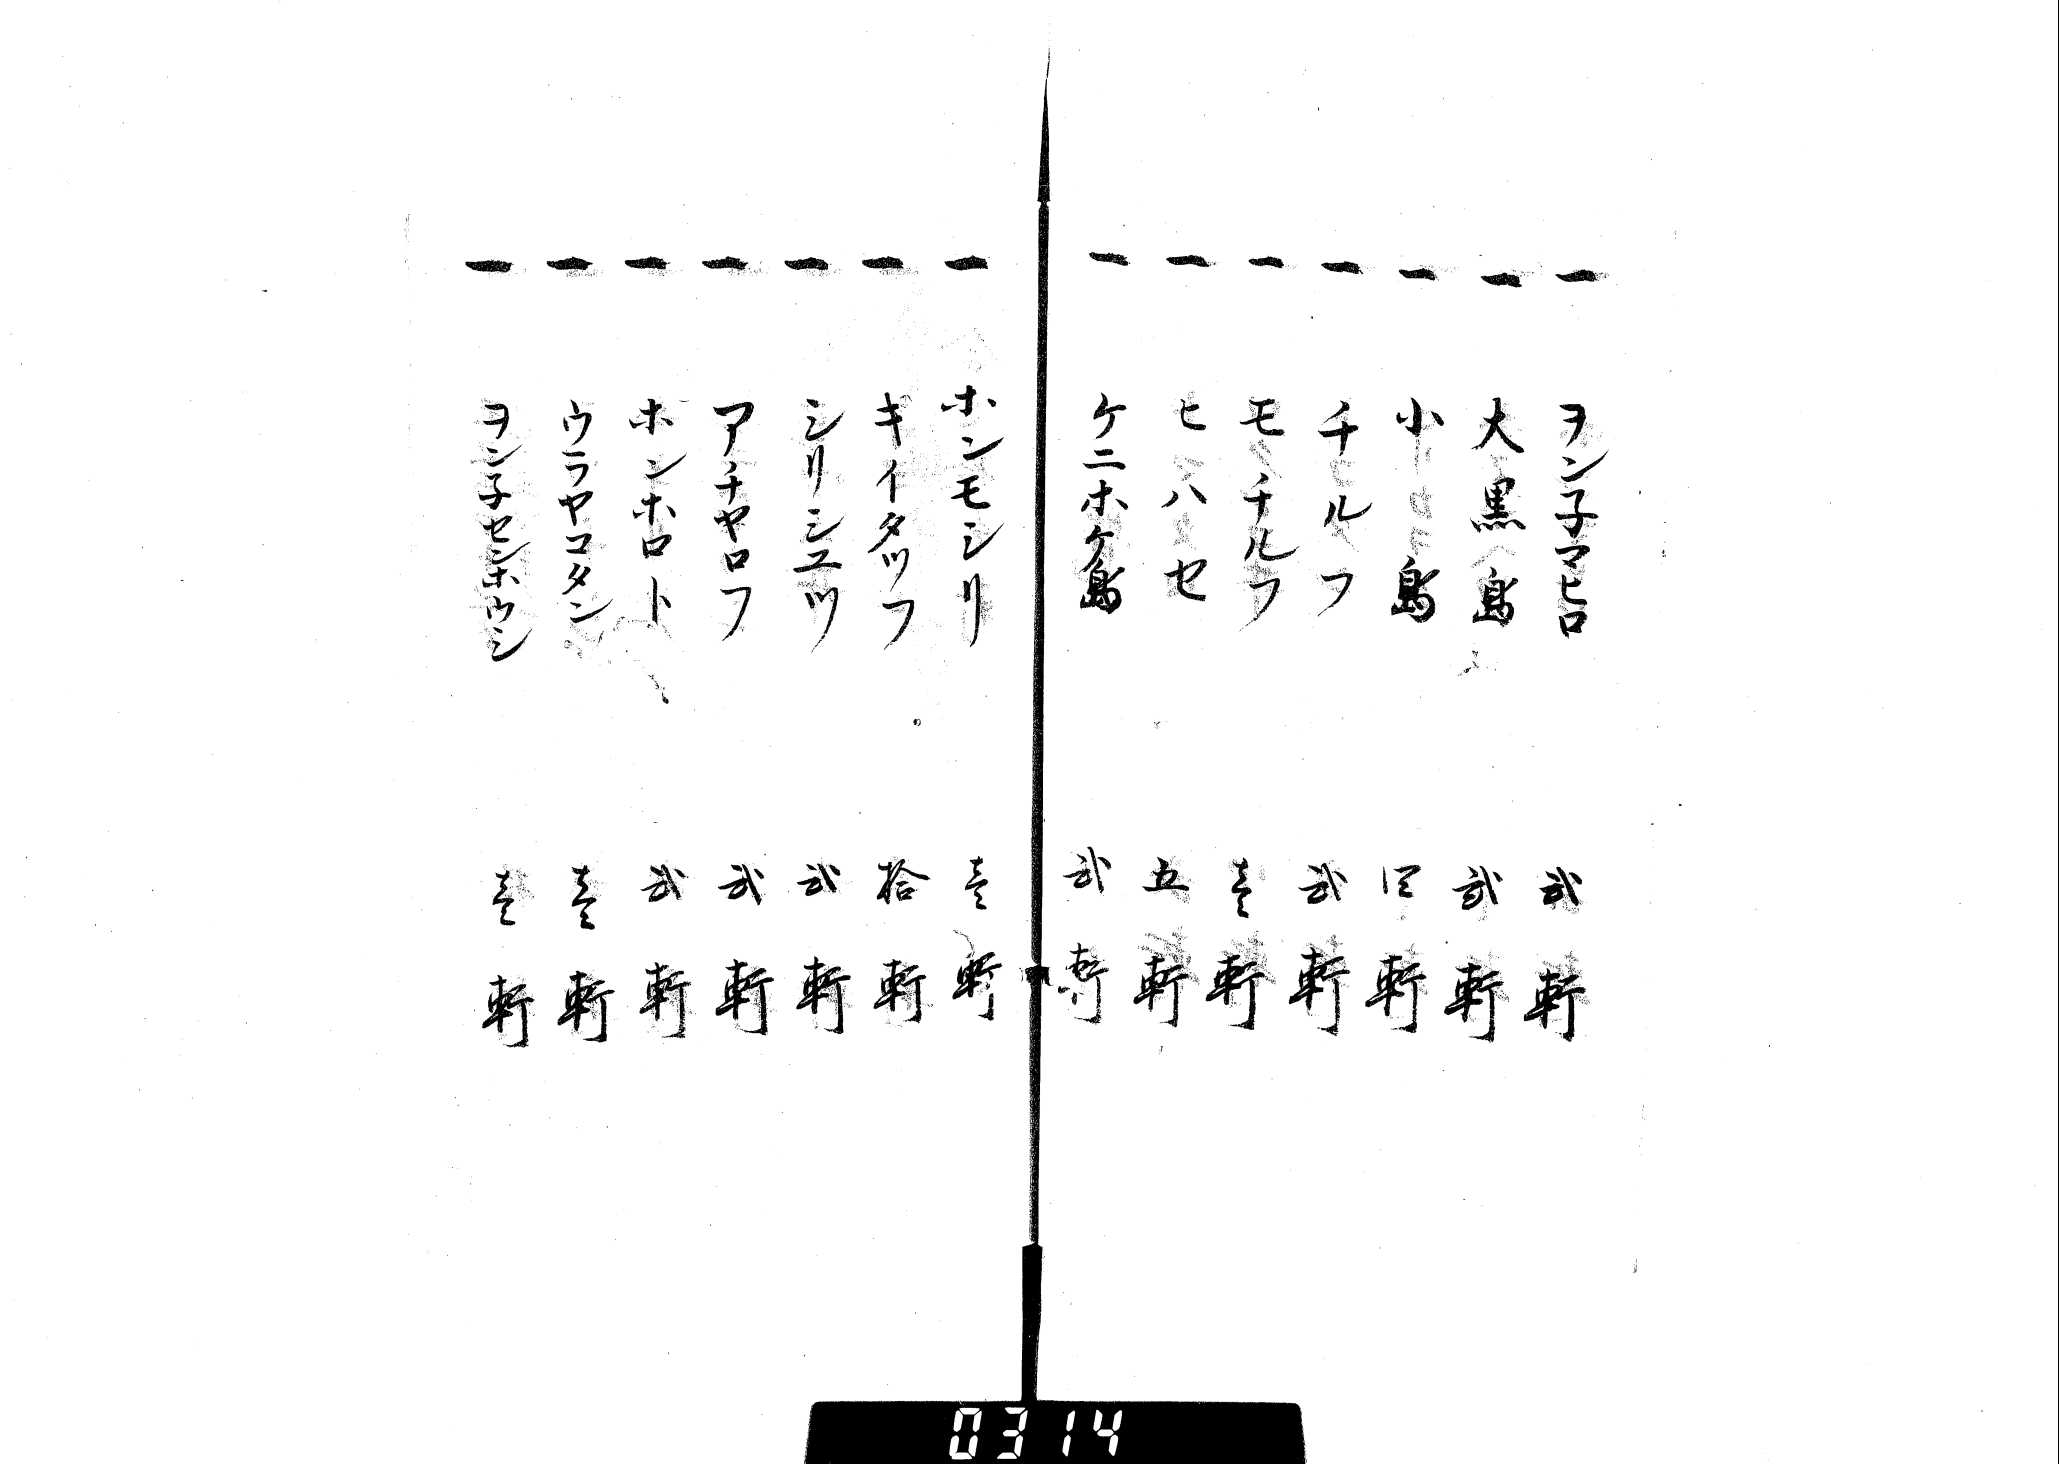 一 ヲン子マヒロ 弐軒
一 大黒島 弐軒
一 小島 四軒
一 チルフ 弐軒
一 モチルフ 壱軒
一 ヒハセ 五軒
一 ケニホケ島 弐軒
一 ホンモシリ 壱軒
一 キイタツフ 拾軒
一 シリシユツ 弐軒
一 アチヤロフ 弐軒
一 ホンホロト 弐軒
一 ウラヤコタン 壱軒
一 ヲン子センホウシ 壱軒
0314